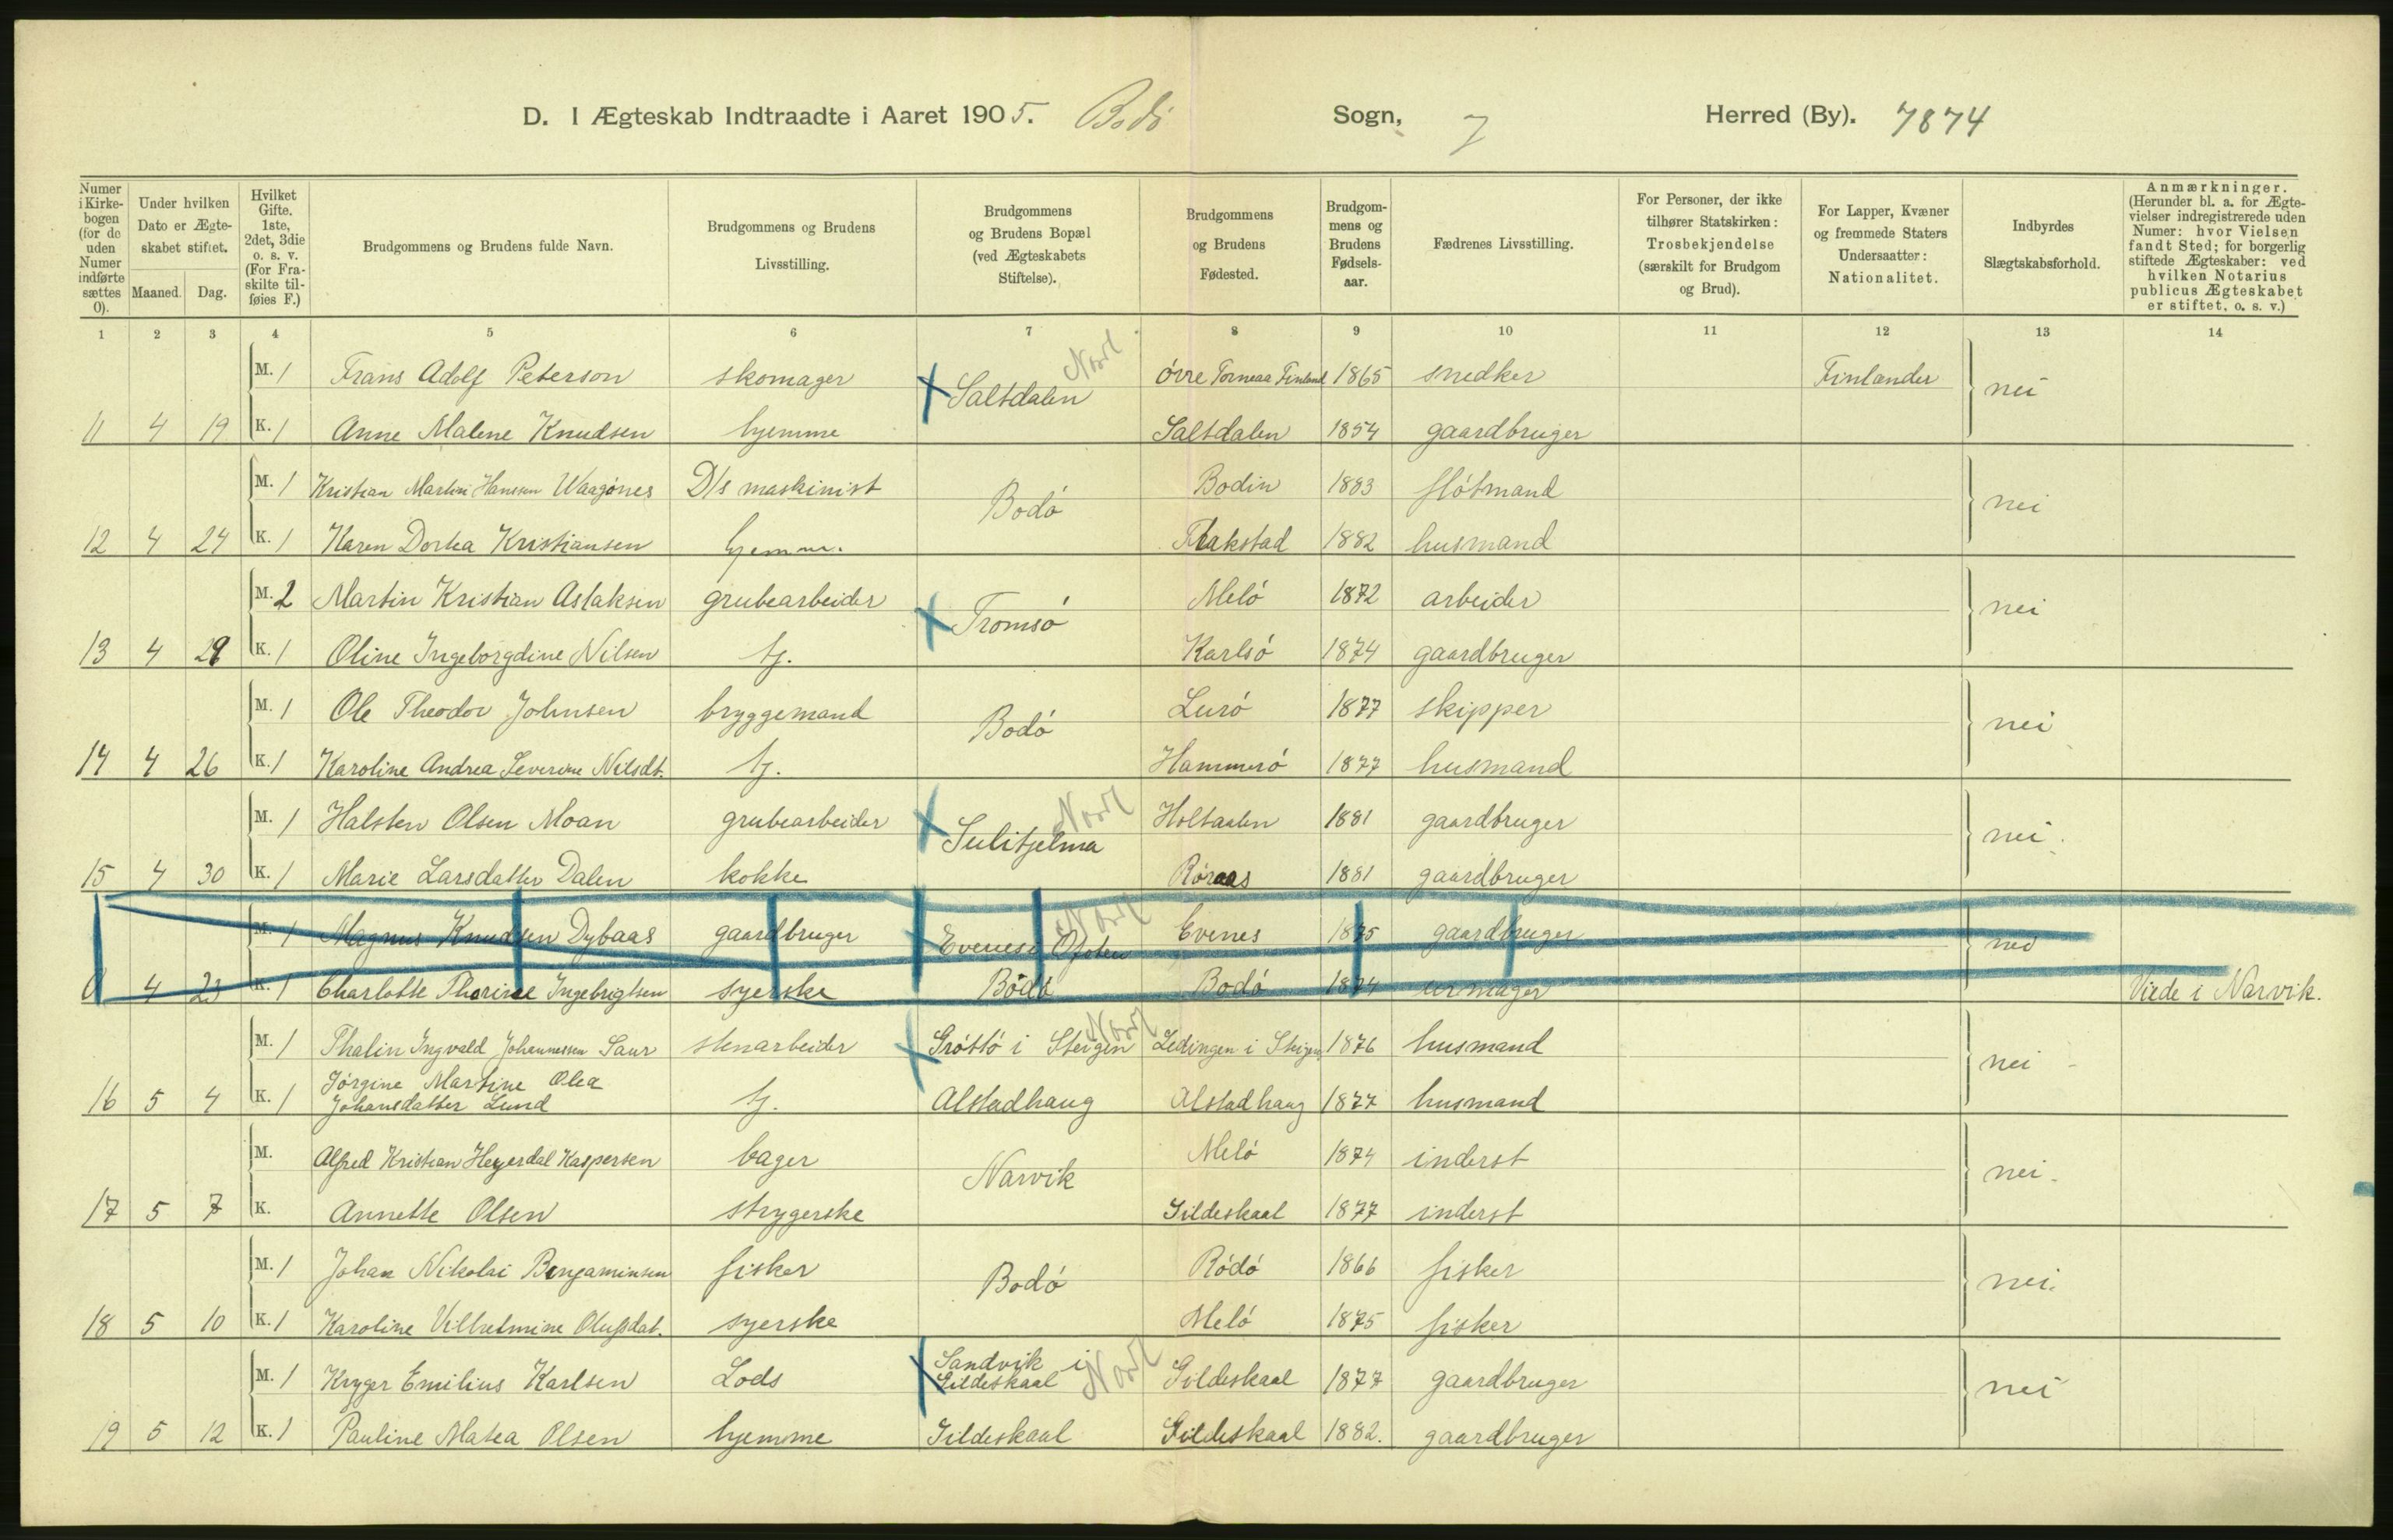 D. I Ægteskab Indtraadte i Aaret 1905. Bodö Sogn, 7 Herred (By). 7874
Numer i Kirkebogen (for de uden Numer indførte sættes 0).
Under hvilken Dato er Ægteskabet stiftet.
Maaned. Dag.
Hvilket Gifte. 1ste, 2det, 3die o. s. v. (For Fraskilte tilføies F.)
Brudgommens og Brudens fulde Navn.
Brudgommens og Brudens Livsstilling.
Brudgommens og Brudens Bopæl (ved Ægteskabets Stiftelse).
Brudgommens og Brudens Fødested.
Brudgommens og Brudens Fødselsaar.
Fædrenes Livsstilling.
For Personer, der ikke tilhører Statskirken: Trosbekjendelse (særskilt for Brudgom og Brud).
For Lapper, Kvæner og fremmede Staters Undersaatter: Nationalitet.
Indbyrdes Slægtskabsforhold.
Anmærkninger. (Herunder bl. a. for Ægtevielser indregistrerede uden Numer: hvor Vielsen fandt Sted; for borgerlig stiftede Ægteskaber: ved hvilken Notarius publicus Ægteskabet er stiftet, o. s. v.)
1 2 3 4 5 6 7 8 9 10 11 12 13 14
M. 1 Frans Adolf Peterson skomager Saltsdalen Nord Övre Torneaa Finland 1865 snedker Finlænder nei
11 4 19 K. 1 Anne Malene Knudsen hjemme Saltsdalen 1854 gaardbruger
M. 1 Kristian Martin Hansen Waagönes D/s maskinist Bodö Bodin 1883 flótmand nei
12 4 24 K. 1 Karen Dortea Kristiansen hjemme. Flakstad 1882 husmand
M. 2 Martin Kristian Aslaksen grubearbeider Tromsö Melö 1872 arbeider nei
13 4 29 K. 1 Oline Ingeborgdine Nilsen tj. Karlsö 1874 gaardbruger
M. 1 Ole Theodor Johnsen bryggemand Bodö Lurö 1877 skipper nei
14 4 26 K. 1 Karoline Andrea Severine Nilsdt. tj. Hammerö 1877 husmand
M. 1 Halsten Olsen Moan grubearbeider Sulitjelma Nord Holtaalen 1881 gaardbruger nei.
15 4 30 K. 1 Marie Larsdatter Dalen kokke Röraas 1881 gaardbruger
M. 1 Magnus Knudsen Dybaas gaardbruger Evenes i Ofoten Nord Evenes 1875 gaardbruger nei
0 4 23 K. 1 Charlotte Thorine Ingebrigtsen syerske Bodö Bodö 1874 urmager Viede i Narvik.
M. 1 Thalin Ingvald Johannessen Saur stenarbeider Gröttö i Steigen Nord Ledingen i Steigen 1876 husmand nei
Jörgine Martine Olea
16 5 4 K. 1 Johansdatter Lund tj. Alstadhaug Alstadhaug 1877 husmand
M. Alfred Kristian Heyerdal Kaspersen bager Narvik Melö 1874 inderst nei.
17 5 7 K. Annette Olsen strygerske Gildeskaal 1877 inderst
M. 1 Johan Nikolai Benjaminsen fisker Bodö Rödö 1866 fisker nei.
18 5 10 K. 1 Karoline Vilhelmine Olufsdat. syerske Melö 1875 fisker
M. 1 Kryger Emilius Karlsen Lods Sandvik i Gildeskaal Nord Gildeskaal 1877 gaardbruger nei
19 5 12 K. 1 Pauline Matea Olsen hjemme Gildeskaal Gildeskaal 1882. gaardbruger